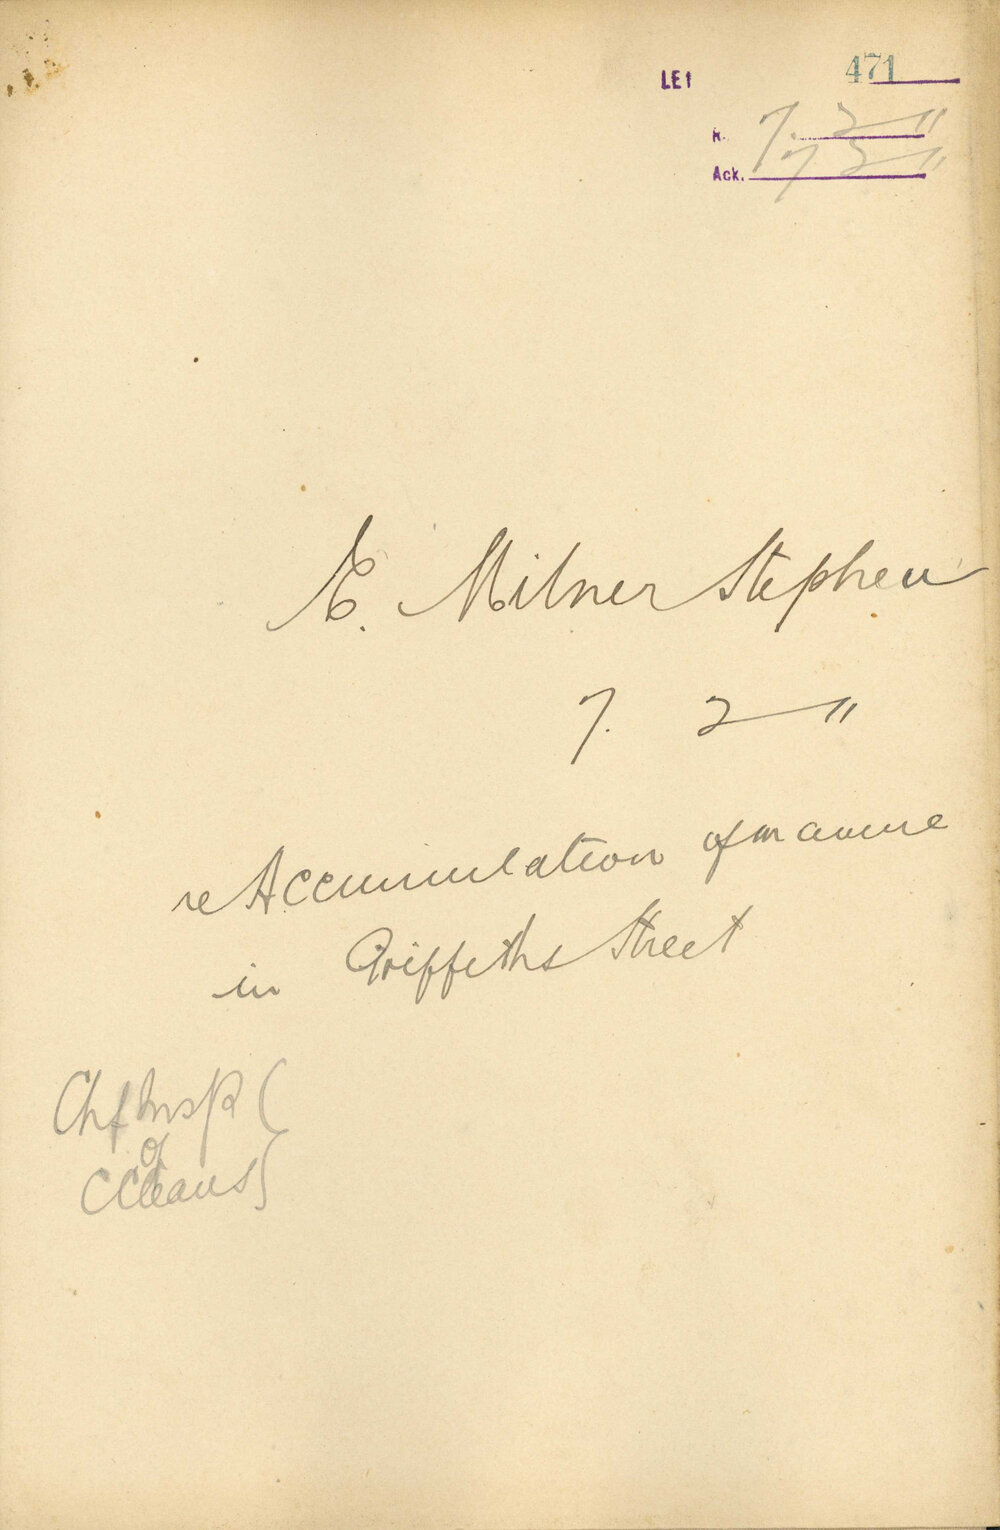 LET 471
R. 7. 2 11
Ack. 7 2 11
E. Milner Stephen
7. 2 11
re Accumulation of manure
in Griffiths Street
Chf Insp
of
CCleans